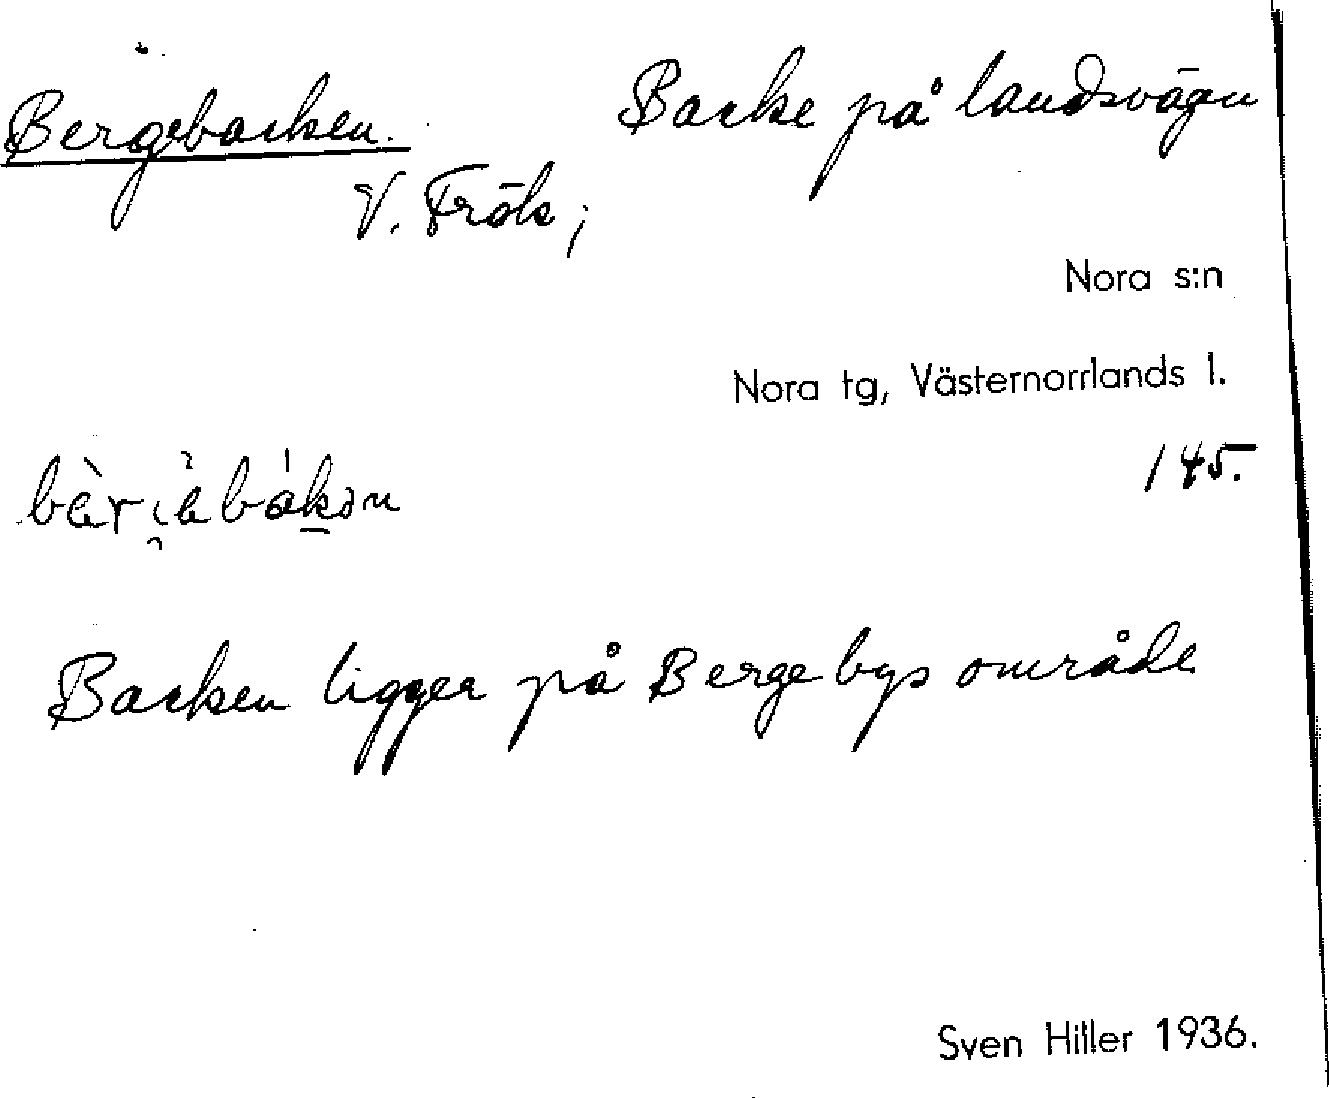 Bergebacken. Backe på landsvägen
V. Frök;
Nora s:n
Nora tg, Västernorrlands l.
145.
Backen ligger på Berge bys område
Sven Hiller 1936.